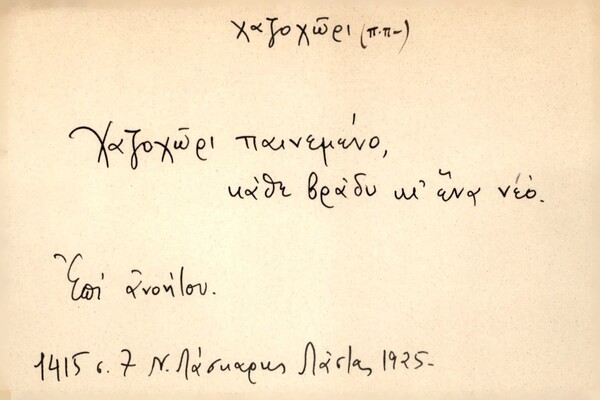 χαζοχῶρι (π.π-)
Χαζοχῶρι παινεμένο,
κάθε βράδυ κι' ἕνα νέο.
Ἐπί ἀνοήτου.
1415 σ. 7 Ν. Λάσκαρης Λάστα, 1925-